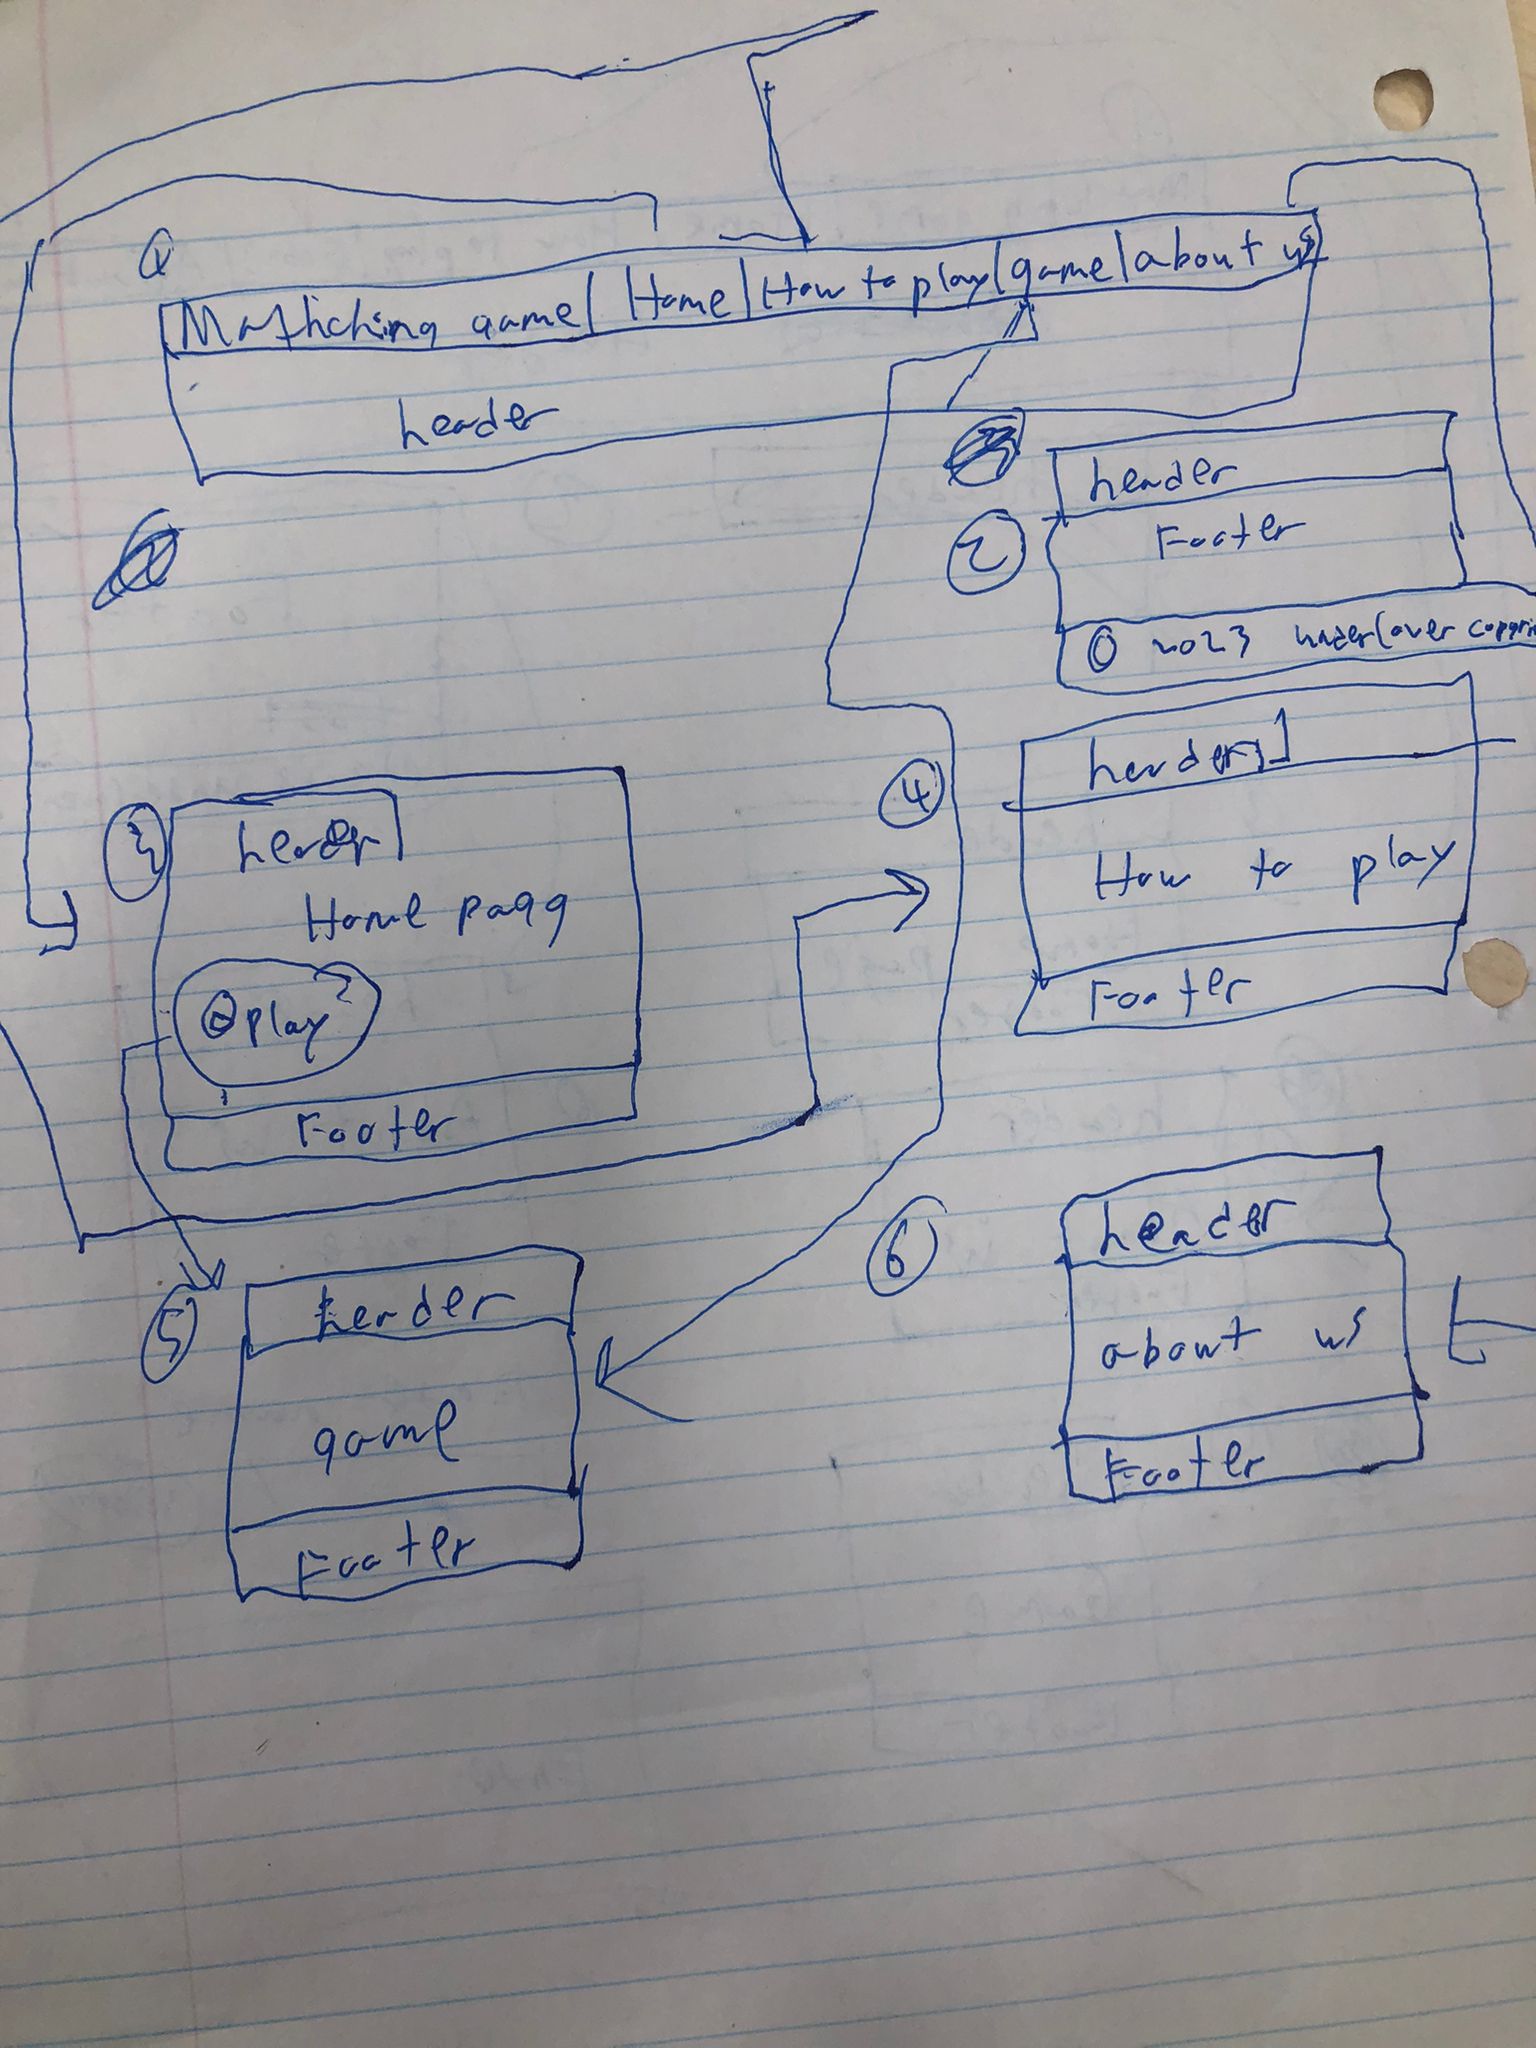 ①
Mathching game | Home | How to play | game | about us
header
②
header
Footer
© 2023 under(over copyri
③
header
Home page
@play
Footer
④
header
How to play
Footer
⑤
header
game
Footer
⑥
header
about us
Footer